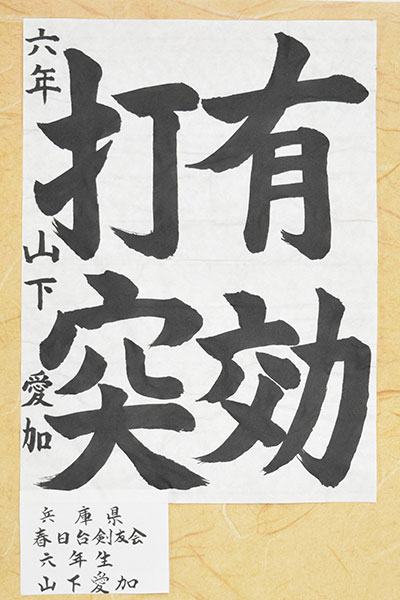 有効
打突
六年 山下 愛加
兵庫県
春日台剣友会
六年生
山下愛加